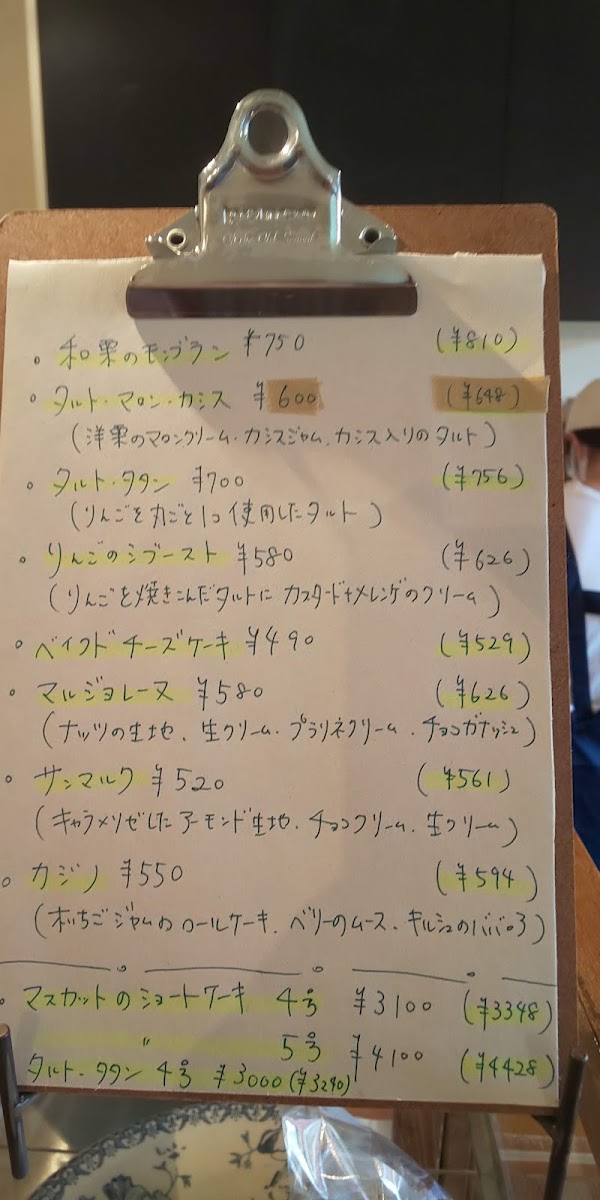 和栗のモンブラン ¥750 (¥810)
タルト・マロン・カシス ¥600 (¥648)
(洋栗のマロンクリーム・カシスジャム、カシス入りのタルト)
タルト・タタン ¥700 (¥756)
(りんごを丸ごと1コ使用したタルト)
りんごのシブースト ¥580 (¥626)
(りんごを焼きこんだタルトに カスタード+メレンゲのクリーム)
ベイクドチーズケーキ ¥490 (¥529)
マルジョレーヌ ¥580 (¥626)
(ナッツの生地、生クリーム・プラリネクリーム・チョコガナッシュ)
サンマルク ¥520 (¥561)
(キャラメリゼしたアーモンド生地、チョコクリーム、生クリーム)
カジノ ¥550 (¥594)
(木いちごジャムのロールケーキ、ベリーのムース・キルシュのババロア)
マスカットのショートケーキ 4号 ¥3100 (¥3348)
〃 5号 ¥4100 (¥4428)
タルト・タタン 4号 ¥3000 (¥3240)